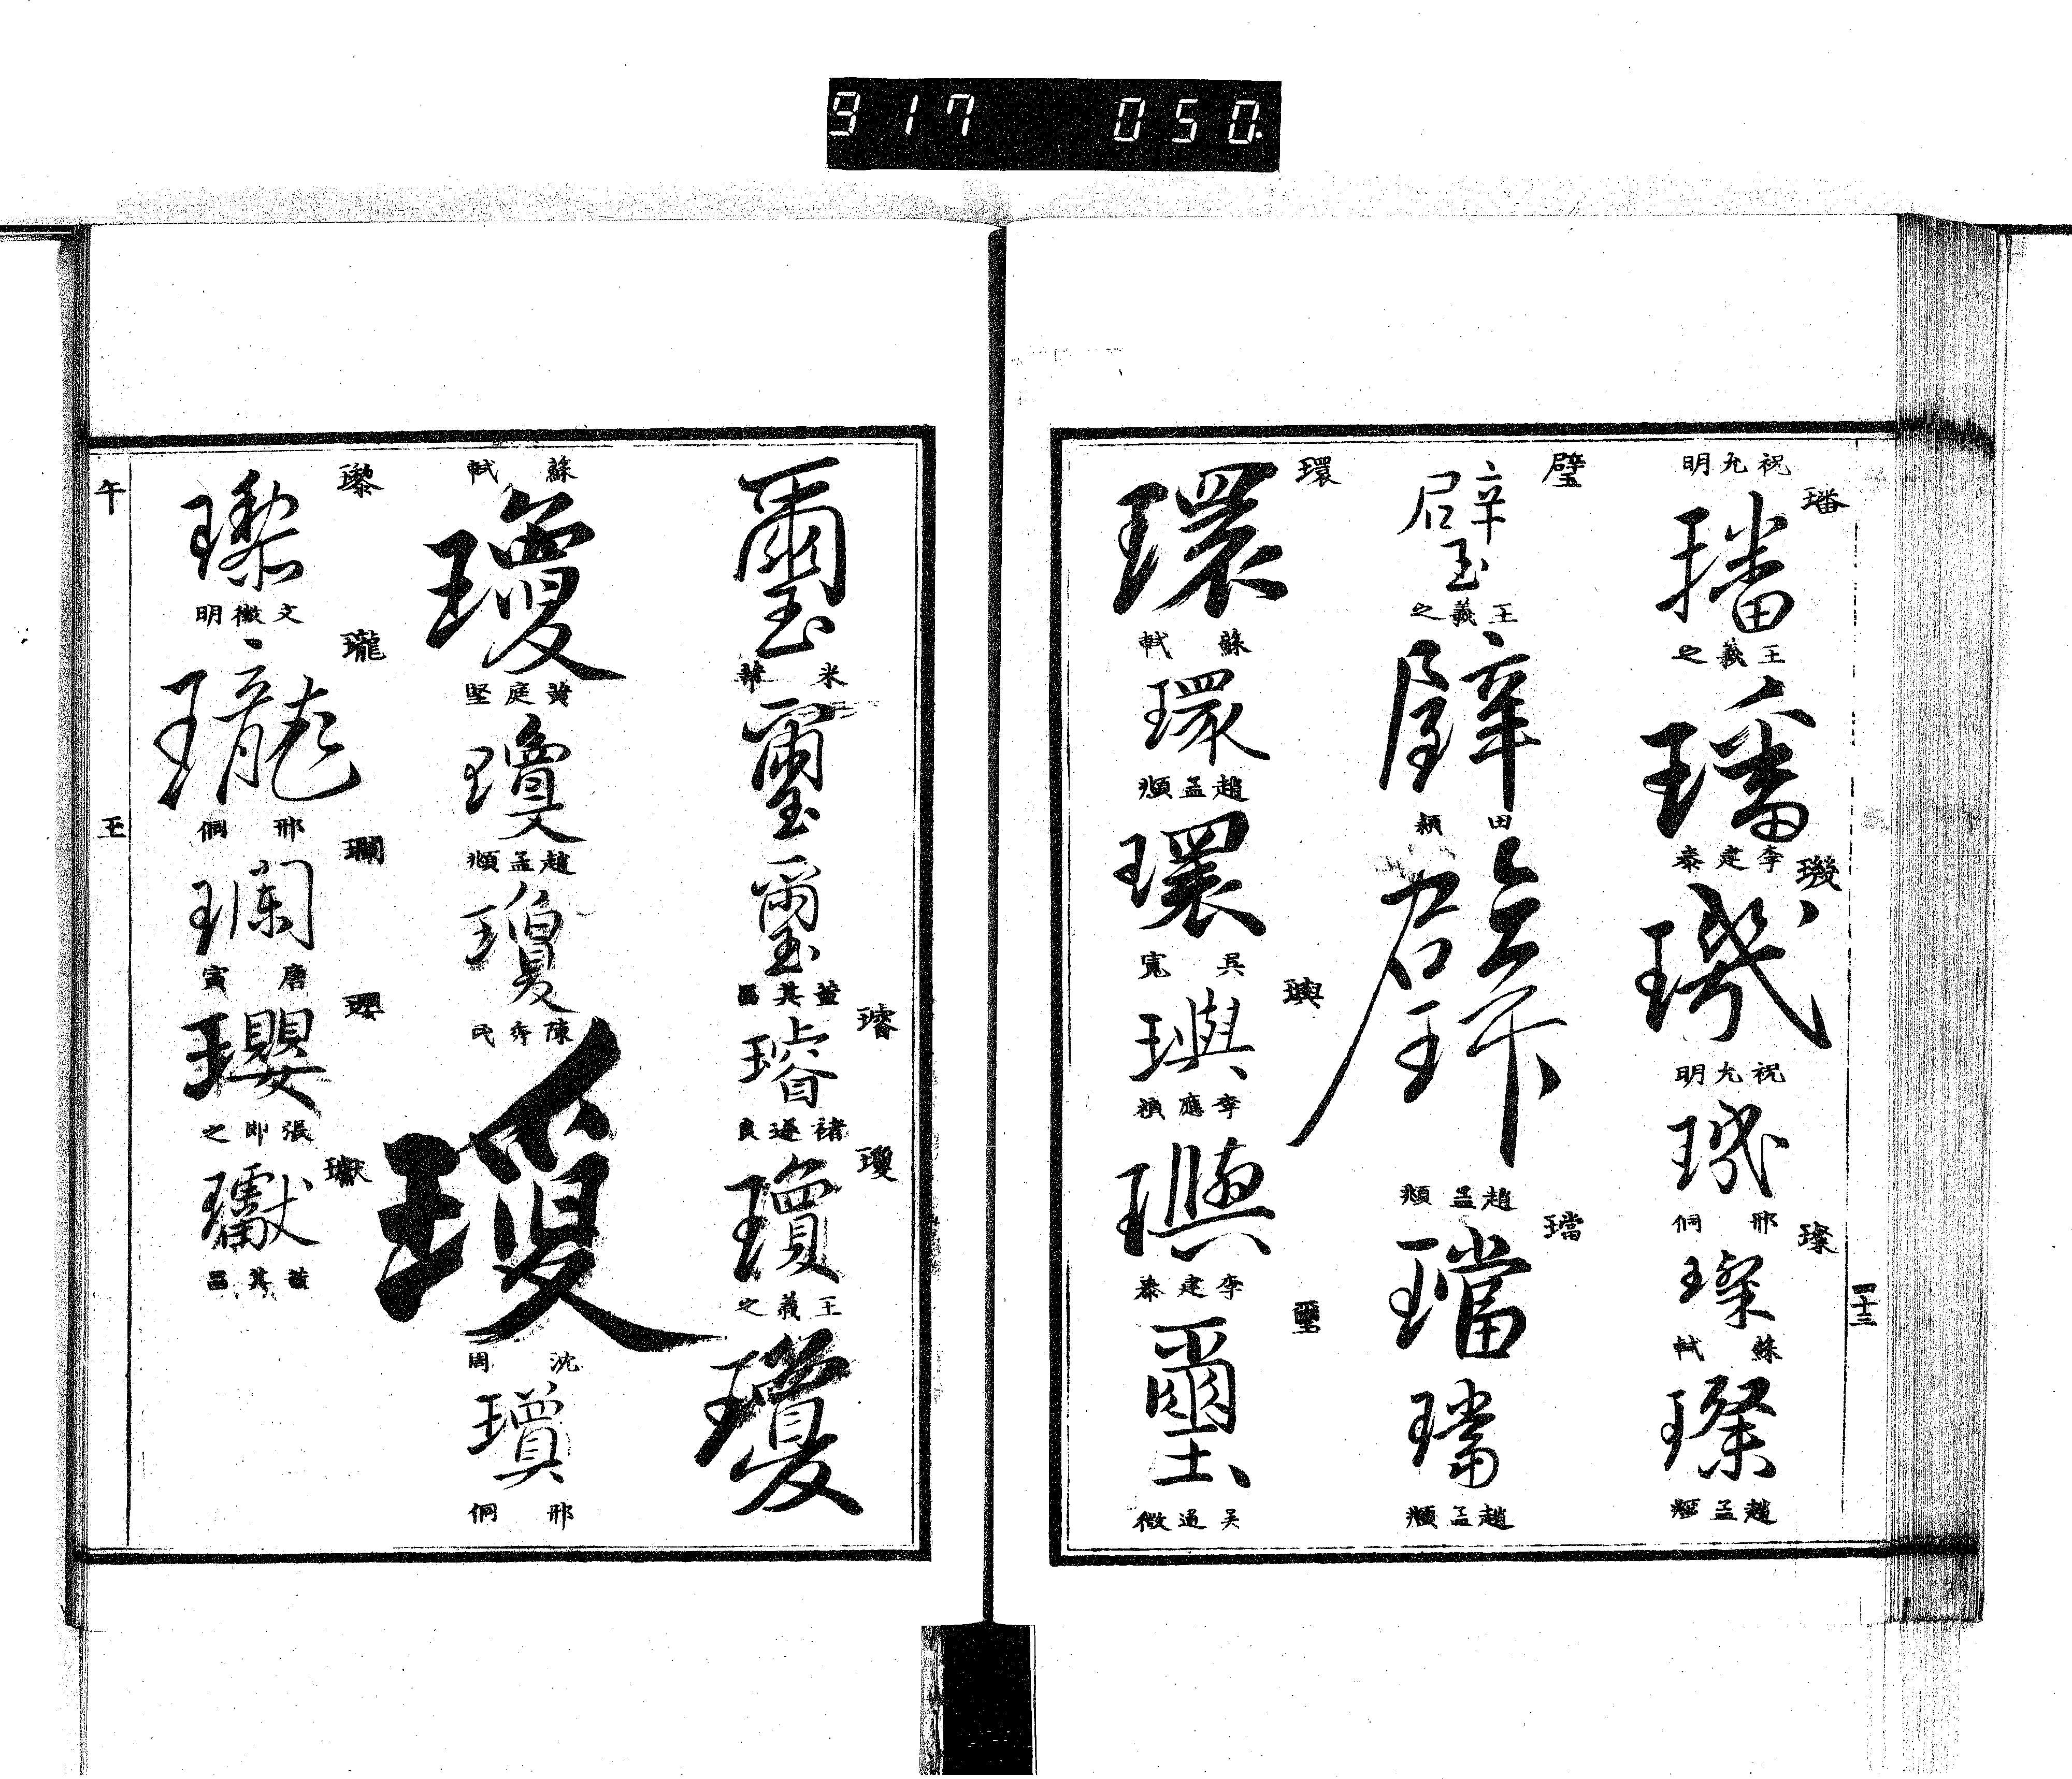 917 050.
璠
祝允明
璠
王羲之
璠
李建泰
璣
璣
祝允明
璣
邢侗
璨
璨
蘇軾
璨
趙孟頫
璧
璧
王羲之
璧
田頵
璧
趙孟頫
璫
璫
璫
趙孟頫
環
環
蘇軾
環
趙孟頫
環
吳寬
璵
璵
李應禎
璵
李建泰
璽
璽
吳通微
四十三
璽
米
璽
璽
董其昌
璿
璿
褚遂良
瓊
瓊
王羲之
瓊
蘇軾
瓊
黃庭堅
瓊
趙孟頫
瓊
陳彥民
瓊
沈周
瓊
邢侗
瓈
瓈
文徵明
瓏
瓏
邢侗
瓓
瓓
唐寅
瓔
瓔
張即之
瓛
瓛
董其昌
午
玉